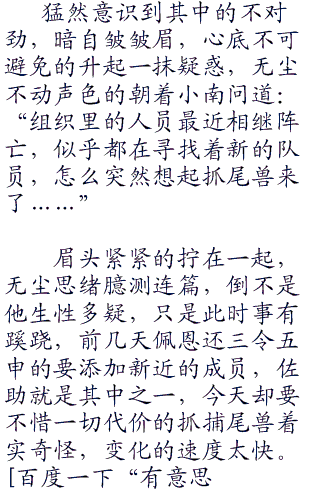 猛然意识到其中的不对
劲，暗自皱皱眉，心底不可
避免的升起一抹疑惑，无尘
不动声色的朝着小南问道：
“组织里的人员最近相继阵
亡，似乎都在寻找着新的队
员，怎么突然想起抓尾兽来
了……”
眉头紧紧的拧在一起，
无尘思绪臆测连篇，倒不是
他生性多疑，只是此时事有
蹊跷，前几天佩恩还三令五
申的要添加新近的成员，佐
助就是其中之一，今天却要
不惜一切代价的抓捕尾兽着
实奇怪，变化的速度太快。
[百度一下“有意思